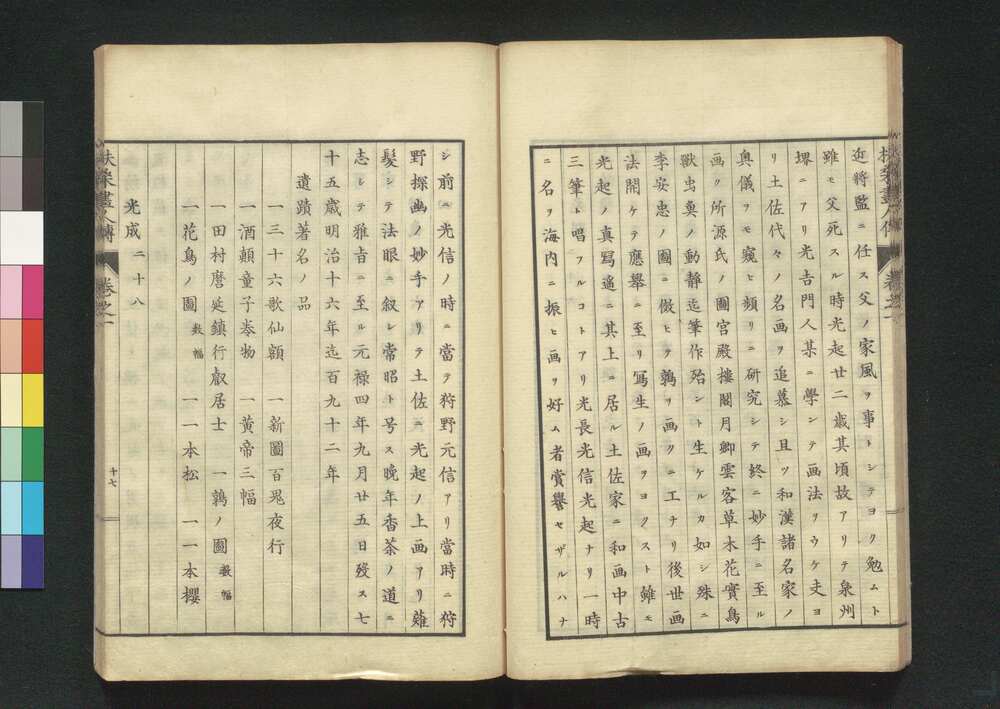 近將監ニ任ス父ノ家風ヲ事トシテヨク勉ムト
雖モ父死スル時光起廿二歳其頃故アリテ泉州
堺ニアリ光吉門人某ニ學シテ画法ヲウケ夫ヨ
リ土佐代々ノ名画ヲ追慕シ且ツ和漢諸名家ノ
奥儀ヲモ窺ヒ頻リニ研究シテ終ニ妙手ニ至ル
画ク所源氏ノ圖宮殿樓閣月卿雲客草木花實鳥
獸虫奠ノ動靜迄筆作殆ント生ケルカ如シ殊ニ
李安忠ノ圖ニ倣ヒテ鶉ヲ画クニ工ナリ後世画
法開ケテ應舉ニ至リ寫生ノ画ヲヨクスト雖モ
光起ノ真寫遙ニ其上ニ居ル土佐家ニ和画中古
三筆ト唱フルコトアリ光長光信光起ナリ一時
ニ名ヲ海内ニ振ヒ画ヲ好ム者賞譽セザルハナ
シ前ニ光信ノ時ニ當テ狩野元信アリ當時ニ狩
野探幽ノ妙手アリテ土佐ニ光起ノ上画アリ薙
髪シテ法眼ニ叙レ常昭ト号ス晩年香茶ノ道ニ
志シテ雅吉ニ至ル元禄四年九月廿五日歿ス七
十五歳明治十六年迄百九十二年
遺蹟著名ノ品
一三十六歌仙額 一新圖百鬼夜行
一酒顛童子巻物 一黄帝三幅
一田村麿延鎮行叡居士 一鶉ノ圖數幅
一花鳥ノ圖數幅 一一本松 一一本櫻
光成 二十八
扶桑畫人傳 卷之一
十七